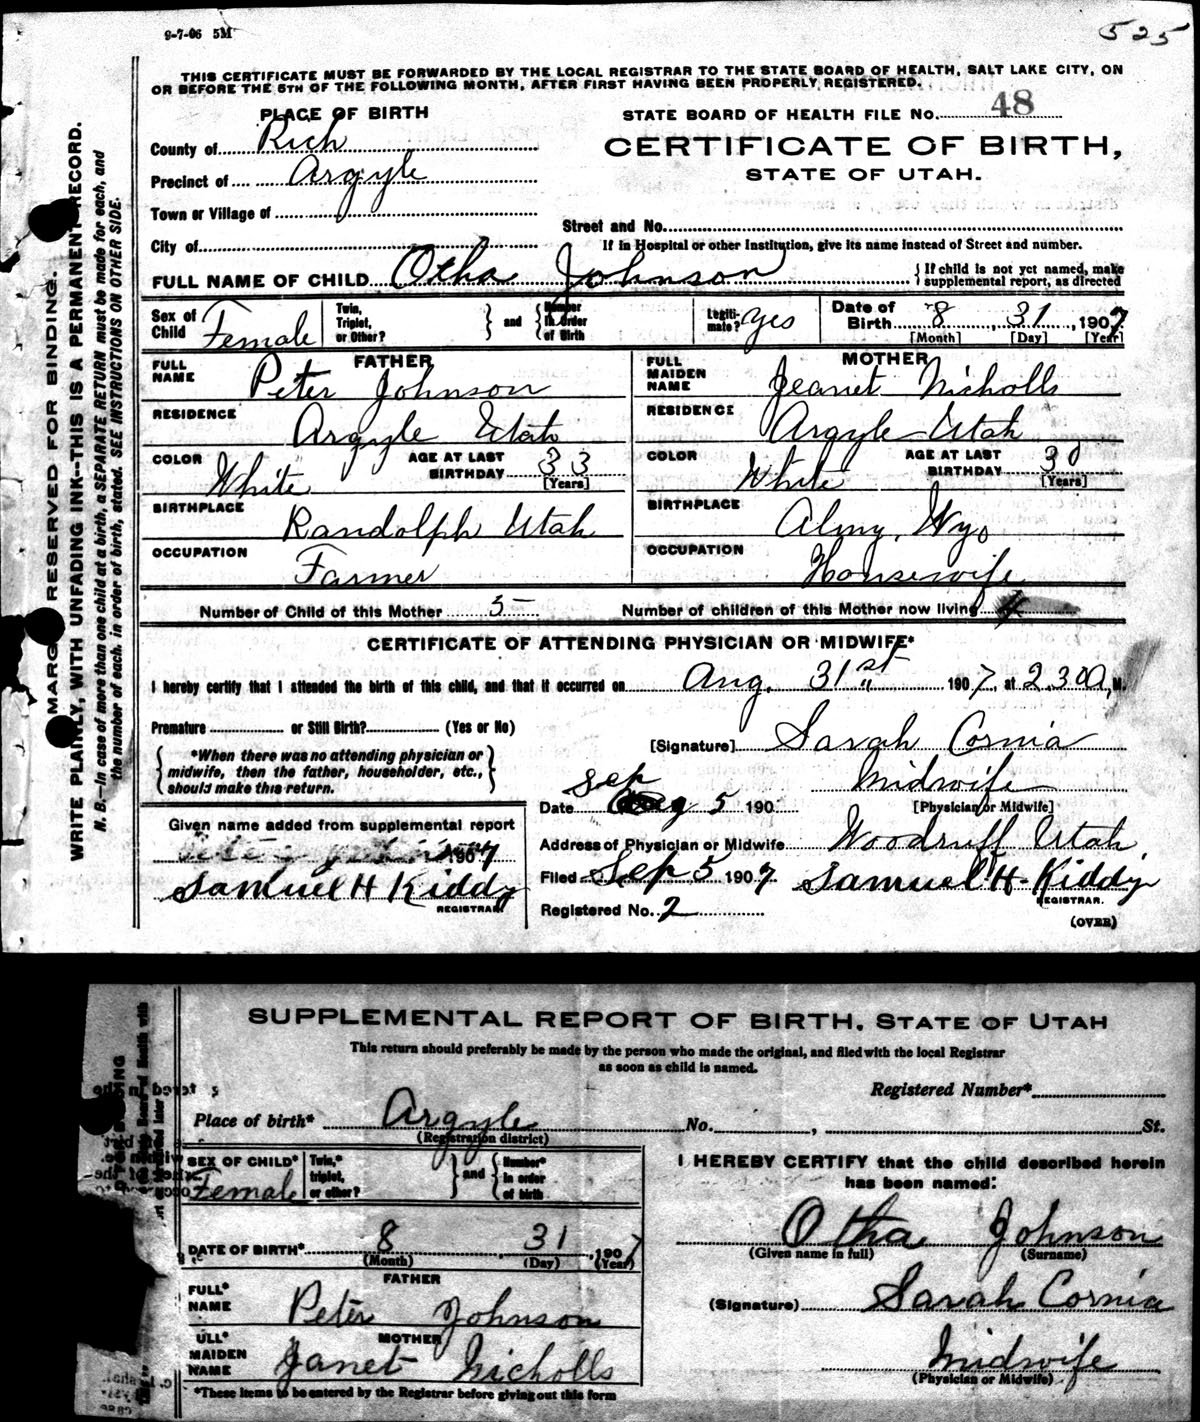 9-7-06 5M
525
THIS CERTIFICATE MUST BE FORWARDED BY THE LOCAL REGISTRAR TO THE STATE BOARD OF HEALTH, SALT LAKE CITY, ON
OR BEFORE THE 5TH OF THE FOLLOWING MONTH, AFTER FIRST HAVING BEEN PROPERLY REGISTERED.
PLACE OF BIRTH
STATE BOARD OF HEALTH FILE NO. 48
County of Rich
CERTIFICATE OF BIRTH,
STATE OF UTAH.
Precinct of Argyle
Town or Village of
Street and No.
City of
If in Hospital or other Institution, give its name instead of Street and number.
FULL NAME OF CHILD Otha Johnson
{If child is not yet named, make
supplemental report, as directed
Sex of Child Female
Twin, Triplet, or Other?
} and {
Number in Order of Birth
Legiti-mate? yes
Date of Birth 8, 31, 1907
[Month] [Day] [Year]
FATHER
MOTHER
FULL NAME Peter Johnson
FULL MAIDEN NAME Jeanet Nicholls
RESIDENCE Argyle Utah
RESIDENCE Argyle Utah
COLOR White AGE AT LAST BIRTHDAY 33 [Years]
COLOR White AGE AT LAST BIRTHDAY 30 [Years]
BIRTHPLACE Randolph Utah
BIRTHPLACE Almy, Wyo
OCCUPATION Farmer
OCCUPATION Housewife
Number of Child of this Mother 5
Number of children of this Mother now living 4
CERTIFICATE OF ATTENDING PHYSICIAN OR MIDWIFE*
I hereby certify that I attended the birth of this child, and that it occurred on Aug. 31st 1907, at 2.30 A, M.
Premature or Still Birth? (Yes or No)
[Signature] Sarah Cornia
*When there was no attending physician or
midwife, then the father, householder, etc.,
should make this return.
Midwife
[Physician or Midwife]
Date Sep 5 190
Given name added from supplemental report
1907
Address of Physician or Midwife Woodruff Utah,
Samuel H Kiddy
REGISTRAR
Filed Sep 5 1907 Samuel H. Kiddy
REGISTRAR.
Registered No. 2
(OVER)
MARGIN RESERVED FOR BINDING.
WRITE PLAINLY, WITH UNFADING INK--THIS IS A PERMANENT RECORD.
N. B.--In case of more than one child at a birth, a SEPARATE RETURN must be made for each, and
the number of each, in order of birth, stated. SEE INSTRUCTIONS ON OTHER SIDE.
SUPPLEMENTAL REPORT OF BIRTH. STATE OF UTAH
This return should preferably be made by the person who made the original, and filed with the local Registrar
as soon as child is named.
Registered Number*
Place of birth* Argyle No. , St.
(Registration district)
SEX OF CHILD* Female
Twin,* triplet, or other?
} and {
Number* in order of birth
I HEREBY CERTIFY that the child described herein
has been named:
Otha Johnson
(Given name in full) (Surname)
DATE OF BIRTH* 8, 31, 1907
(Month) (Day) (Year)
FATHER
FULL* NAME Peter Johnson
(Signature) Sarah Cornia
MOTHER
ULL* MAIDEN NAME Janet Nicholls
Midwife
(Physician or Midwife)
*These items to be entered by the Registrar before giving out this form